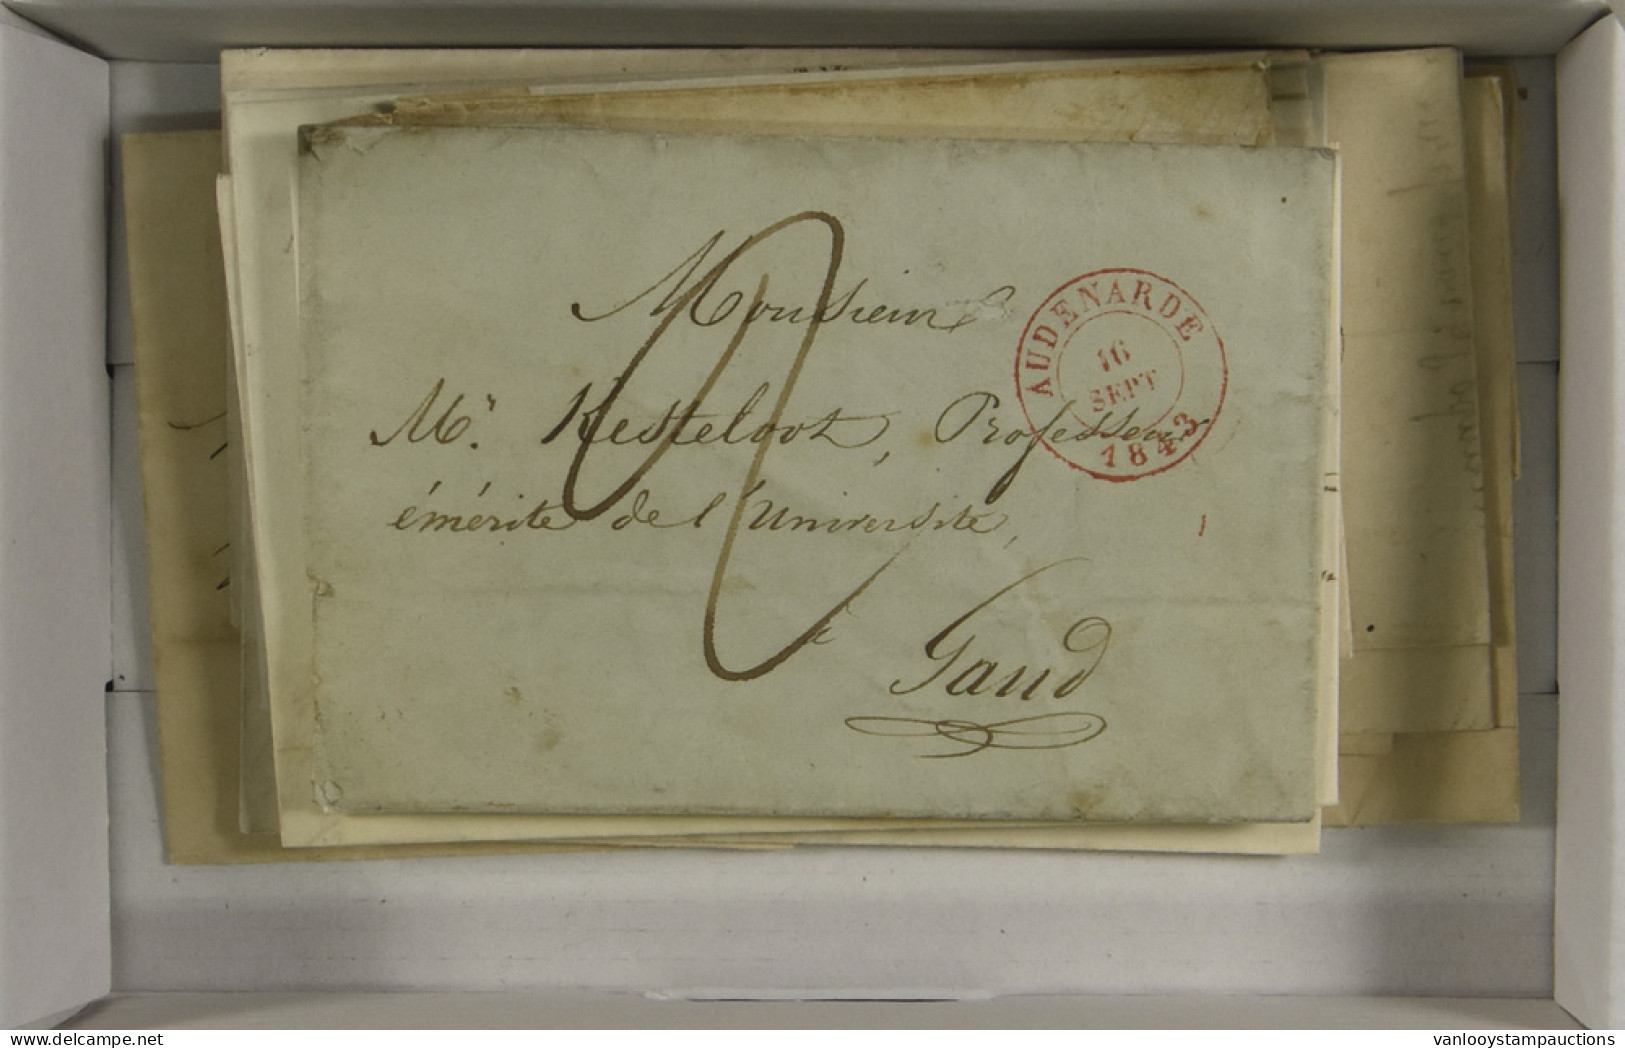 Monsieur
Mr. Kesteloot, Professeur
émérite de l'Université,
à
Gand
AUDENARDE
16
SEPT
1843
delcampe.net
vanlooystampauctions